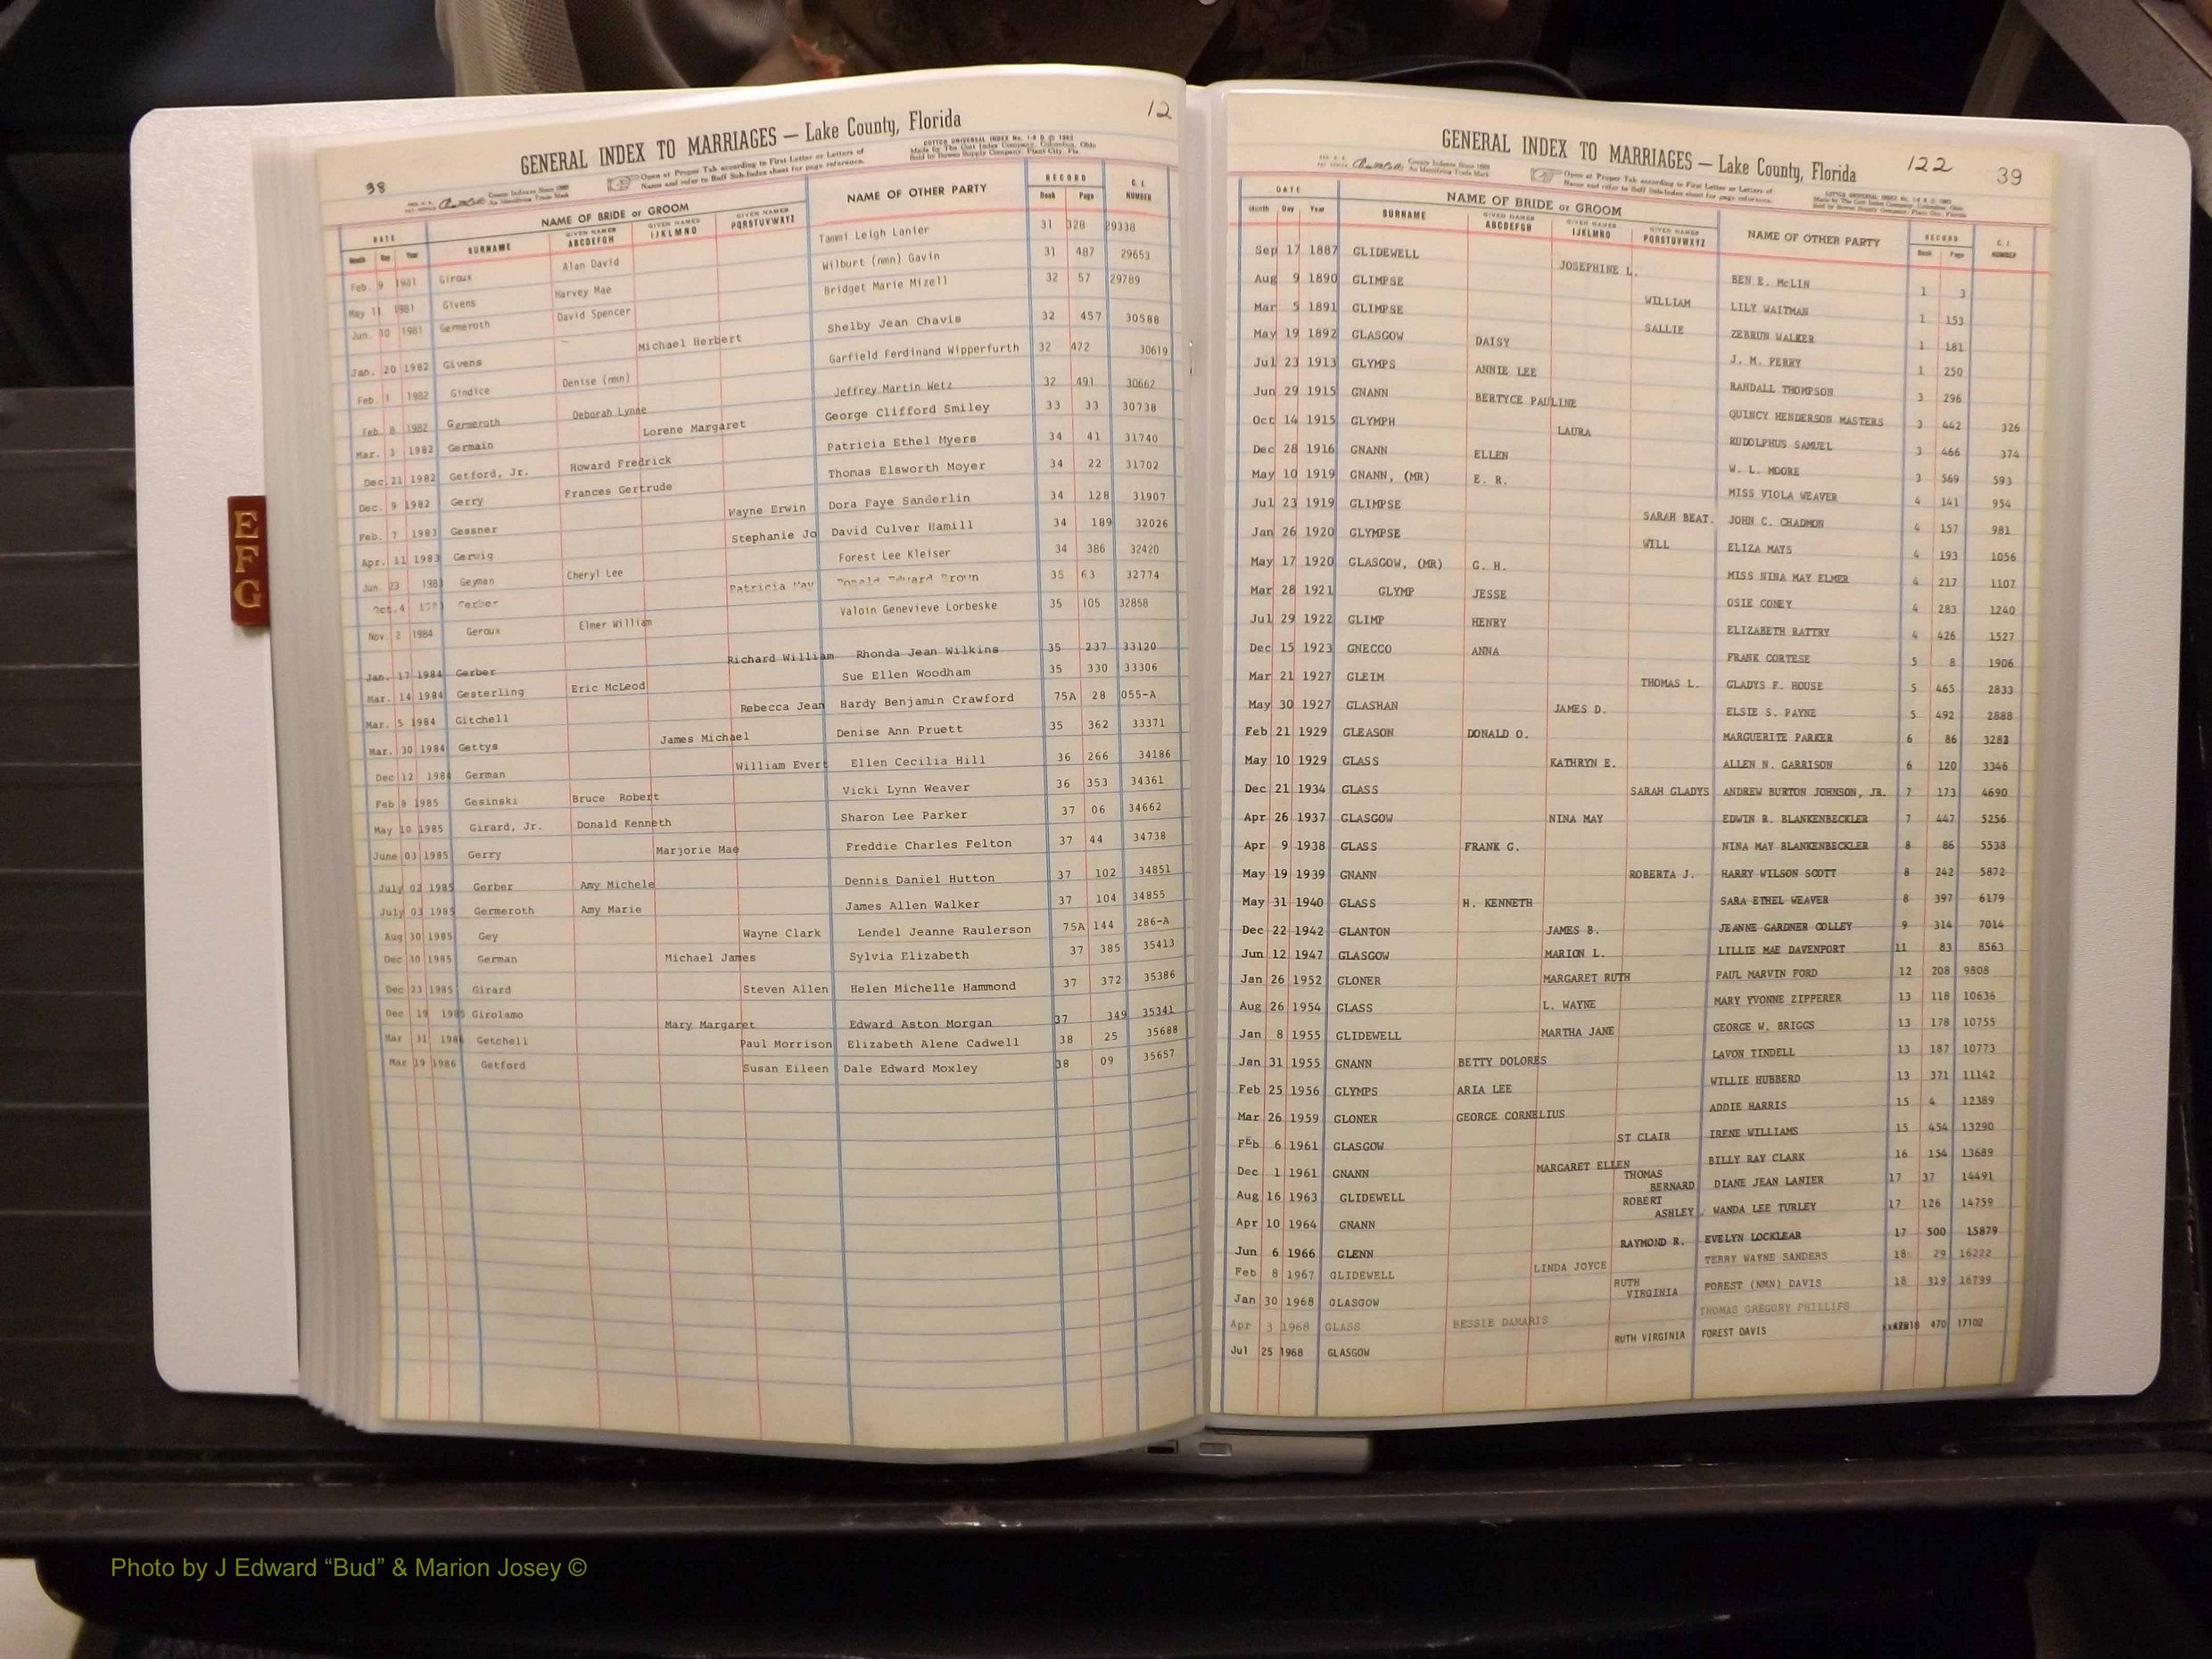 12
GENERAL INDEX TO MARRIAGES — Lake County, Florida
38
Open at Proper Tab according to First Letter or Letters of
Name and refer to Buff Sub-Index sheet for page reference.
COTT'S UNIVERSAL INDEX
Made by The Cott Index Company, Columbus, Ohio
Sold by Bowen Supply Company, Plant City, Fla.
DATE NAME OF BRIDE or GROOM NAME OF OTHER PARTY RECORD C. I.
Month Day Year SURNAME GIVEN NAMES ABCDEFGH GIVEN NAMES IJKLMNO GIVEN NAMES PQRSTUVWXYZ Book Page NUMBER
Feb. 9 1981 Giroux Alan David Tammi Leigh Lanier 31 328 29338
May 11 1981 Givens Harvey Mae Wilburt (nmn) Gavin 31 487 29653
Jun. 10 1981 Germeroth David Spencer Bridget Marie Mizell 32 57 29789
Jan. 20 1982 Givens Michael Herbert Shelby Jean Chavis 32 457 30588
Feb. 1 1982 Gindice Denise (nmn) Garfield Ferdinand Wipperfurth 32 472 30619
Feb. 8 1982 Germeroth Deborah Lynne Jeffrey Martin Wetz 32 491 30662
Mar. 3 1982 Germain Lorene Margaret George Clifford Smiley 33 33 30738
Dec. 21 1982 Getford, Jr. Howard Fredrick Patricia Ethel Myers 34 41 31740
Dec. 9 1982 Gerry Frances Gertrude Thomas Elsworth Moyer 34 22 31702
Feb. 7 1983 Gessner Wayne Erwin Dora Faye Sanderlin 34 128 31907
Apr. 11 1983 Gerwig Stephanie Jo David Culver Hamill 34 189 32026
Jun. 23 198 Geyman Cheryl Lee Forest Lee Kleiser 34 386 32420
Oct. 4 Gerber Patricia May Ronald Edward Brown 35 63 32774
Nov. 2 1984 Geroux Elmer William Valoin Genevieve Lorbeske 35 105 32858
Jan. 17 1984 Gerber Richard William Rhonda Jean Wilkins 35 237 33120
Mar. 14 1984 Gesterling Eric McLeod Sue Ellen Woodham 35 330 33306
Mar. 5 1984 Gitchell Rebecca Jean Hardy Benjamin Crawford 75A 28 055-A
Mar. 30 1984 Gettys James Michael Denise Ann Pruett 35 362 33371
Dec 12 1984 German William Evert Ellen Cecilia Hill 36 266 34186
Feb 8 1985 Gesinski Bruce Robert Vicki Lynn Weaver 36 353 34361
May 10 1985 Girard, Jr. Donald Kenneth Sharon Lee Parker 37 06 34662
June 03 1985 Gerry Marjorie Mae Freddie Charles Felton 37 44 34738
July 02 1985 Gerber Amy Michele Dennis Daniel Hutton 37 102 34851
July 03 1985 Germeroth Amy Marie James Allen Walker 37 104 34855
Aug 30 1985 Gey Wayne Clark Lendel Jeanne Raulerson 75A 144 286-A
Dec 30 1985 German Michael James Sylvia Elizabeth 37 385 35413
Dec 23 1985 Girard Steven Allen Helen Michelle Hammond 37 372 35386
Dec 19 1985 Girolamo Mary Margaret Edward Aston Morgan 37 349 35341
Mar 31 1986 Getchell Paul Morrison Elizabeth Alene Cadwell 38 25 35688
Mar 19 1986 Getford Susan Eileen Dale Edward Moxley 38 09 35657
E
F
G
GENERAL INDEX TO MARRIAGES — Lake County, Florida 122 39
Open at Proper Tab according to First Letter or Letters of
Name and refer to Buff Sub-Index sheet for page reference.
DATE NAME OF BRIDE or GROOM NAME OF OTHER PARTY RECORD C. I.
Month Day Year SURNAME GIVEN NAMES ABCDEFGH GIVEN NAMES IJKLMNO GIVEN NAMES PQRSTUVWXYZ Book Page NUMBER
Sep 17 1887 GLIDEWELL JOSEPHINE L. BEN E. McLIN 1 3
Aug 9 1890 GLIMPSE WILLIAM LILY WAITMAN 1 153
Mar 5 1891 GLIMPSE SALLIE ZEBRUN WALKER 1 181
May 19 1892 GLASGOW DAISY J. M. PERRY 1 250
Jul 23 1913 GLYMPS ANNIE LEE RANDALL THOMPSON 3 296
Jun 29 1915 GNANN BERTYCE PAULINE QUINCY HENDERSON MASTERS 3 442 326
Oct 14 1915 GLYMPH LAURA RUDOLPHUS SAMUEL 3 466 374
Dec 28 1916 GNANN ELLEN W. L. MOORE 3 569 593
May 10 1919 GNANN, (MR) E. R. MISS VIOLA WEAVER 4 141 954
Jul 23 1919 GLIMPSE SARAH BEAT. JOHN C. CHADMON 4 157 981
Jan 26 1920 GLYMPSE WILL ELIZA MAYS 4 193 1056
May 17 1920 GLASGOW, (MR) G. H. MISS NINA MAY ELMER 4 217 1107
Mar 28 1921 GLYMP JESSE OSIE CONEY 4 283 1240
Jul 29 1922 GLIMP HENRY ELIZABETH RATTRY 4 426 1527
Dec 15 1923 GNECCO ANNA FRANK CORTESE 5 8 1906
Mar 21 1927 GLEIM THOMAS L. GLADYS F. HOUSE 5 465 2833
May 30 1927 GLASHAN JAMES D. ELSIE S. PAYNE 5 492 2888
Feb 21 1929 GLEASON DONALD O. MARGUERITE PARKER 6 86 3283
May 10 1929 GLASS KATHRYN E. ALLEN N. GARRISON 6 120 3346
Dec 21 1934 GLASS SARAH GLADYS ANDREW BURTON JOHNSON, JR. 7 173 4690
Apr 26 1937 GLASGOW NINA MAY EDWIN R. BLANKENBECKLER 7 447 5256
Apr 9 1938 GLASS FRANK G. NINA MAY BLANKENBECKLER 8 86 5538
May 19 1939 GNANN ROBERTA J. HARRY WILSON SCOTT 8 242 5872
May 31 1940 GLASS H. KENNETH SARA ETHEL WEAVER 8 397 6179
Dec 22 1942 GLANTON JAMES B. JEANNE GARDNER COLLEY 9 314 7014
Jun 12 1947 GLASGOW MARION L. LILLIE MAE DAVENPORT 11 83 8563
Jan 26 1952 GLONER MARGARET RUTH PAUL MARVIN FORD 12 208 9808
Aug 26 1954 GLASS L. WAYNE MARY YVONNE ZIPPERER 13 118 10636
Jan 8 1955 GLIDEWELL MARTHA JANE GEORGE W. BRIGGS 13 178 10755
Jan 31 1955 GNANN BETTY DOLORES LAVON TINDELL 13 187 10773
Feb 25 1956 GLYMPS ARIA LEE WILLIE HUBBERD 13 371 11142
Mar 26 1959 GLONER GEORGE CORNELIUS ADDIE HARRIS 15 4 12389
FEb 6 1961 GLASGOW ST CLAIR IRENE WILLIAMS 15 454 13290
Dec 1 1961 GNANN MARGARET ELLEN BILLY RAY CLARK 16 154 13689
Aug 16 1963 GLIDEWELL THOMAS BERNARD DIANE JEAN LANIER 17 37 14491
Apr 10 1964 GNANN ROBERT ASHLEY WANDA LEE TURLEY 17 126 14759
Jun 6 1966 GLENN RAYMOND R. EVELYN LOCKLEAR 17 500 15879
Feb 8 1967 GLIDEWELL LINDA JOYCE TERRY WAYNE SANDERS 18 29 16222
Jan 30 1968 GLASGOW RUTH VIRGINIA FOREST (NMN) DAVIS 18 319 16799
Apr 3 1968 GLASS BESSIE DAMARIS THOMAS GREGORY PHILLIPS
Jul 25 1968 GLASGOW RUTH VIRGINIA FOREST DAVIS 18 470 17102
Photo by J Edward “Bud” & Marion Josey ©